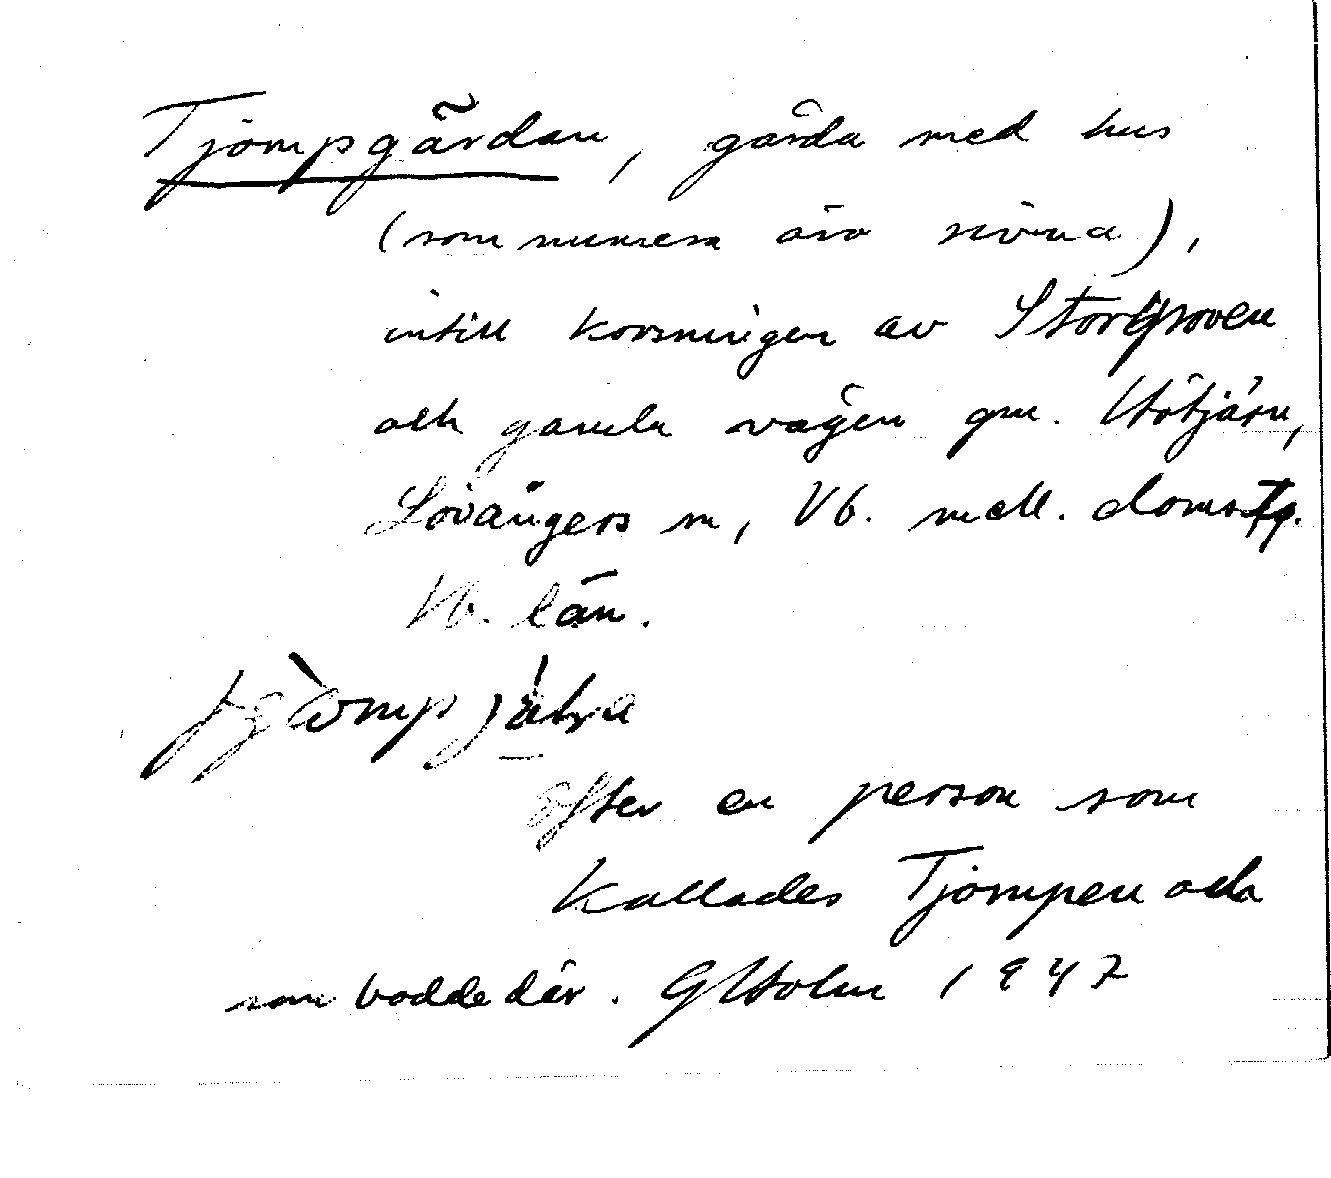 Tjömpgärdan, gärda med hus
(som numera äro rivna),
intill korsningen av Storgroven
och gamla vägen gm. Hötjärn,
Lövångers sn, Vb. mell. domsag.
Vb. län.
efter en person som
kallades Tjömpen och
som bodde där. G Holm 1947